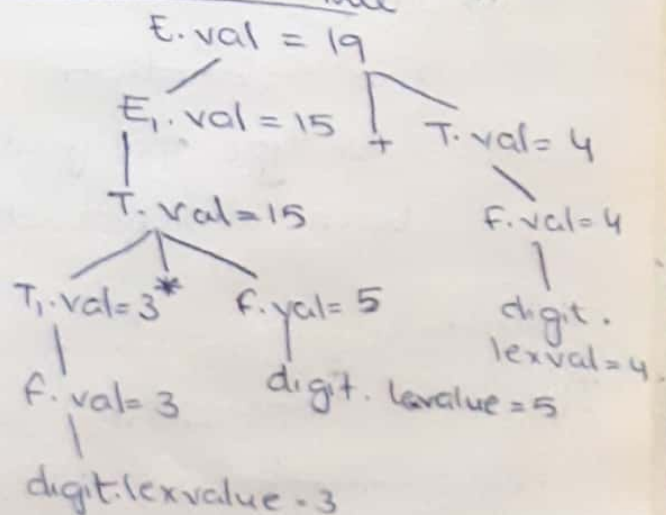 E.val = 19
E₁.val = 15 + T.val = 4
T.val = 15 F.val = 4
T₁.val = 3 * F.val = 5 digit.
lexval = 4
F.val = 3 digit. lexvalue = 5
digit.lexvalue = 3